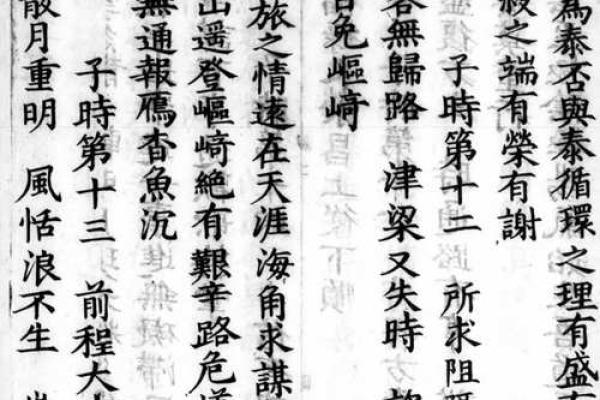 為泰否與泰循環之理有盛有
殺之端有榮有謝
子時第十二 所求阻
客無歸路 津梁又失時
免嶇崎
旅之情遠在天涯海角求謀
山遥登嶇崎絶有艱辛路危
無通報雁杳魚沉
子時第十三 前程大
散月重明 風恬浪不生